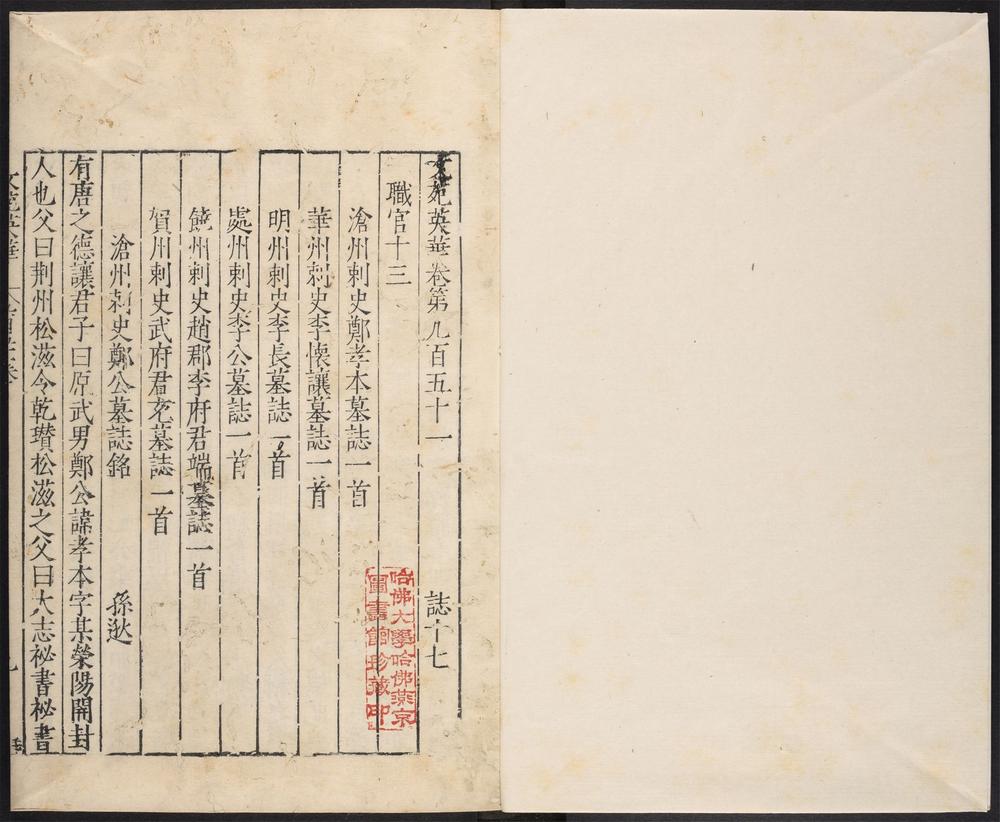 文苑英華卷第九百五十一 誌十七
職官十三
滄州刺史鄭孝本墓誌一首
華州刺史李懷讓墓誌一首
明州刺史李長墓誌一首
處州刺史李公墓誌一首
饒州刺史趙郡李府君端墓誌一首
賀州刺史武府君充墓誌一首
滄州刺史鄭公墓誌銘 孫逖
有唐之德讓君子曰原武男鄭公諱孝本字某榮陽開封
人也父曰荆州松滋令乾瓉松滋之父曰大志祕書祕書
哈佛大學哈佛燕京
圖書館珍藏印